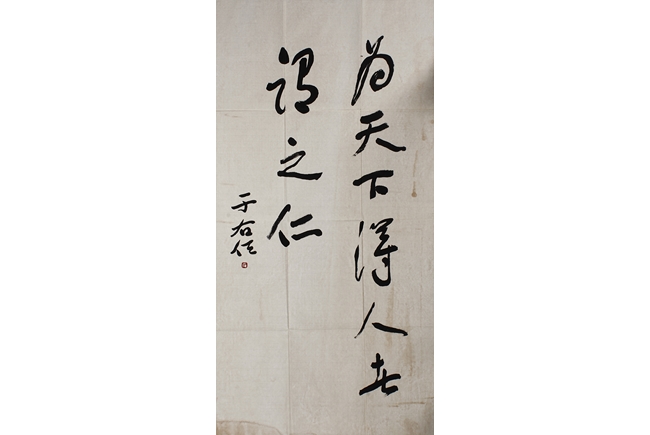 為天下得人者
謂之仁
于右任